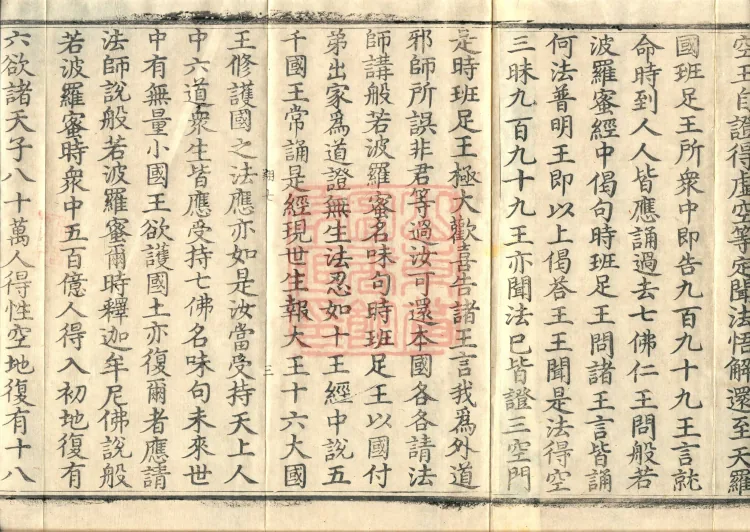 空王自證得虛空等定聞法悟解還至天羅
國班足王所衆中即告九百九十九王言就
命時到人人皆應誦過去七佛仁王問般若
波羅蜜經中偈句時班足王問諸王言皆誦
何法普明王即以上偈荅王王聞是法得空
三昧九百九十九王亦聞法已皆證三空門
是時班足王極大歡喜告諸王言我爲外道
邪師所誤非君等過汝可還本國各各請法
師講般若波羅蜜名味句時班足王以國付
弟出家爲道證無生法忍如十王經中說五
千國王常誦是經現世生報大王十六大國
王修護國之法應亦如是汝當受持天上人
中六道衆生皆應受持七佛名味句未來世
中有無量小國王欲護國土亦復爾者應請
法師說般若波羅蜜爾時釋迦牟尼佛說般
若波羅蜜時衆中五百億人得入初地復有
六欲諸天子八十萬人得性空地復有十八
翔七
三